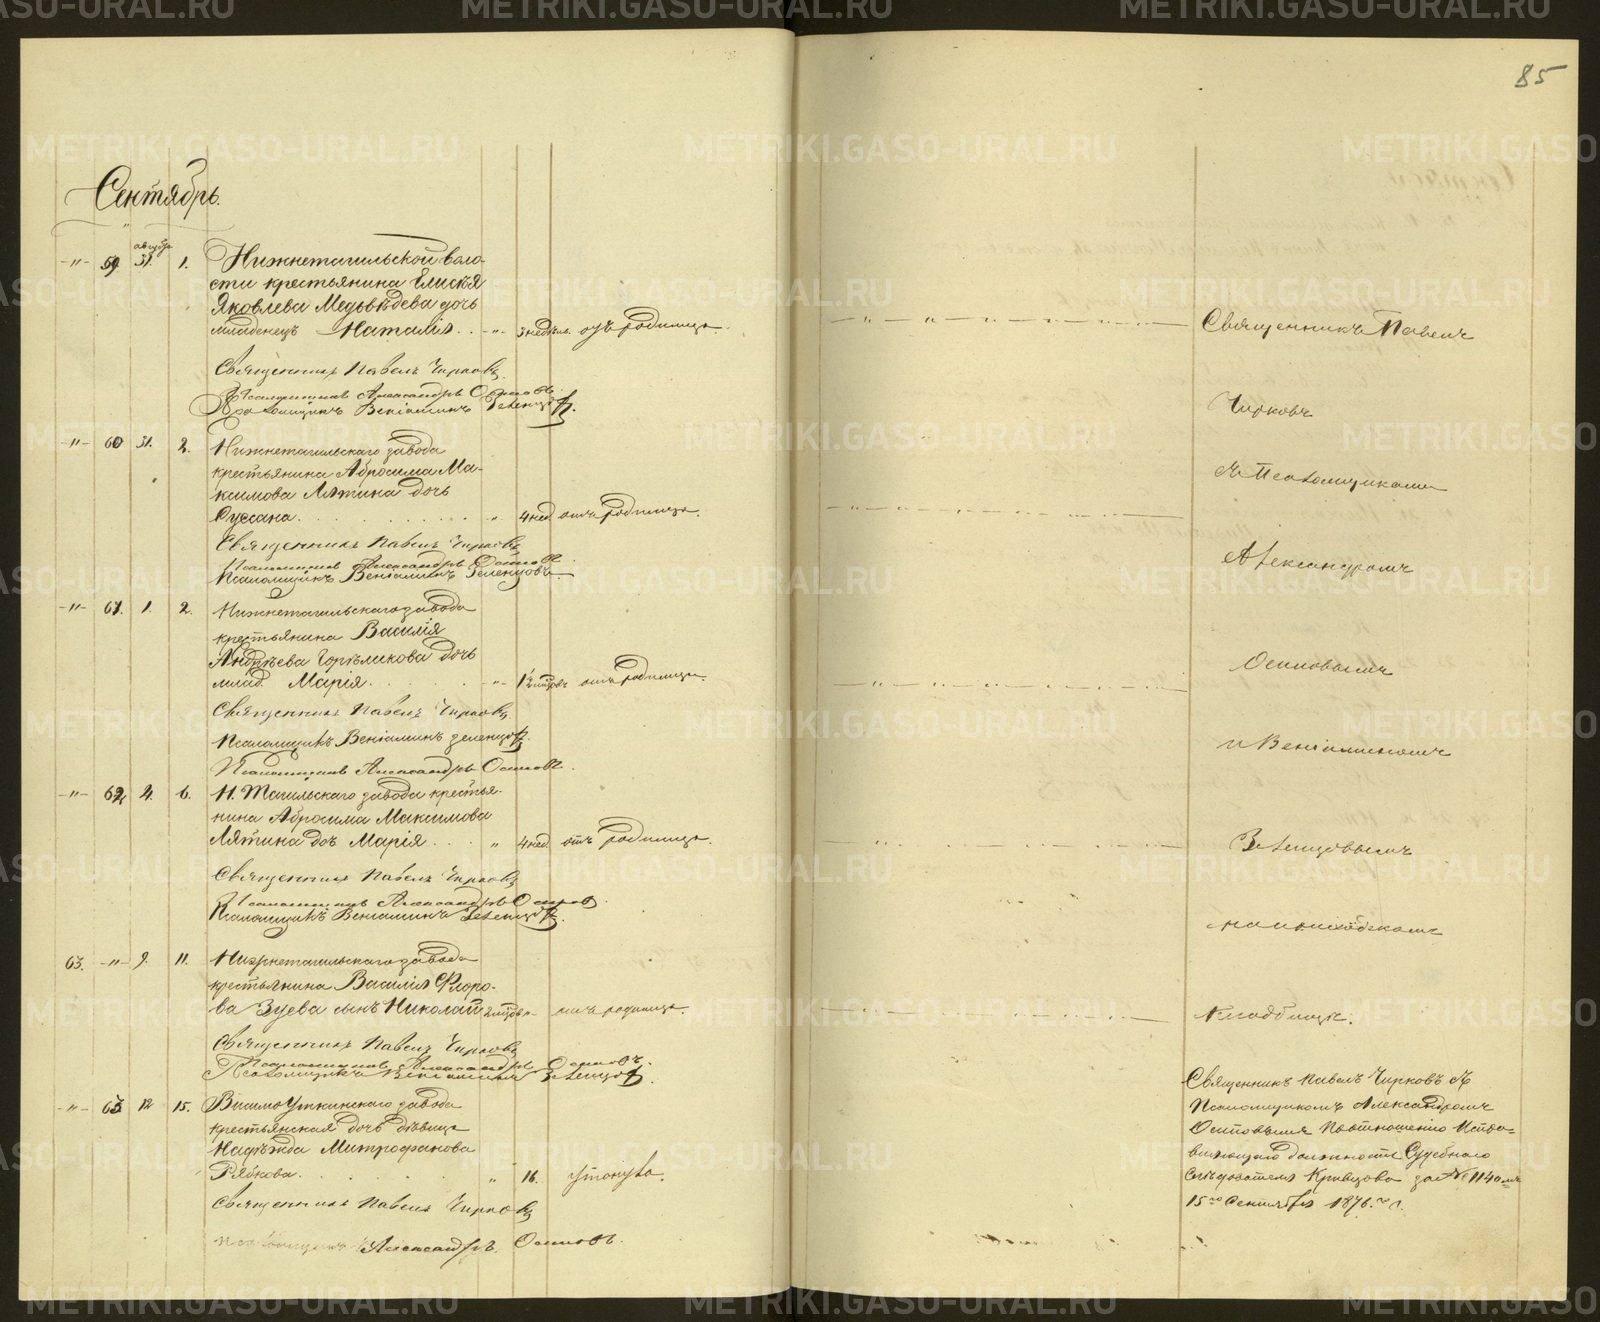 85
Сентябрь.
-"- 59. августа 31. 1. Нижнетагильской воло-
сти крестьянина Елисея
Яковлева Медвѣдева дочь
младенецъ Наталія . . -"- 3 недѣль. отъ родимца.
Священникъ Павелъ Чирковъ.
Псаломщикъ Александръ Осиповъ.
Псаломщикъ Веніаминъ Зеленцовъ.
-"- 60 31. 2. Нижнетагильскаго завода
крестьянина Абросима Ма-
ксимова Лятина дочь
Сусана. . . . " 4 нед. отъ родимца.
Священникъ Павелъ Чирковъ
Псаломщикъ Александръ Осиповъ
Псаломщикъ Веніаминъ Зеленцовъ.
-"- 61. 1. 2. Нижнетагильскаго завода
крестьянина Василія
Андреева дочь
млад. Марія. . . -"- 1½ отъ родимца.
Священникъ Павелъ Чирковъ
Псаломщикъ Веніаминъ Зеленцовъ.
Псаломщикъ Александръ Осиповъ.
-"- 62 4. 6. Н. Тагильскаго завода крестья-
нина Абросима Максимова
Лятина дочь Марія . . . " 4 нед. отъ родимца.
Священникъ Павелъ Чирковъ
Псаломщикъ Александръ Осиповъ
Псаломщикъ Веніаминъ Зеленцовъ.
63. -"- 9. 11. Нижнетагильскаго завода
крестьянина Василія Флоро-
ва Зуева сынъ Николай отъ родимца.
Священникъ Павелъ Чирковъ
Псаломщикъ Александръ Осиповъ.
Псаломщикъ Веніаминъ Зеленцовъ.
-"- 63 12 15. ВисимоУткинскаго завода
крестьянская дочь дѣвица
Надежда Митрофанова
Рябкова. . . . " 16. утонула.
Священникъ Павелъ Чирковъ
Псаломщикъ Александръ Осиповъ.
Священникъ Павелъ
Чирковъ
съ Псаломщиками
Александромъ
Осиповымъ
и Веніаминомъ
Зеленцовымъ
на приходскомъ
кладбищѣ.
Священникъ Павелъ Чирковъ съ
Псаломщикомъ Александромъ
Осиповымъ По отношенію Испра-
вляющаго должность Судебного
Слѣдователя за № 1140 отъ
15го Сентября 1876 г.
METRIKI.GASO-URAL.RU